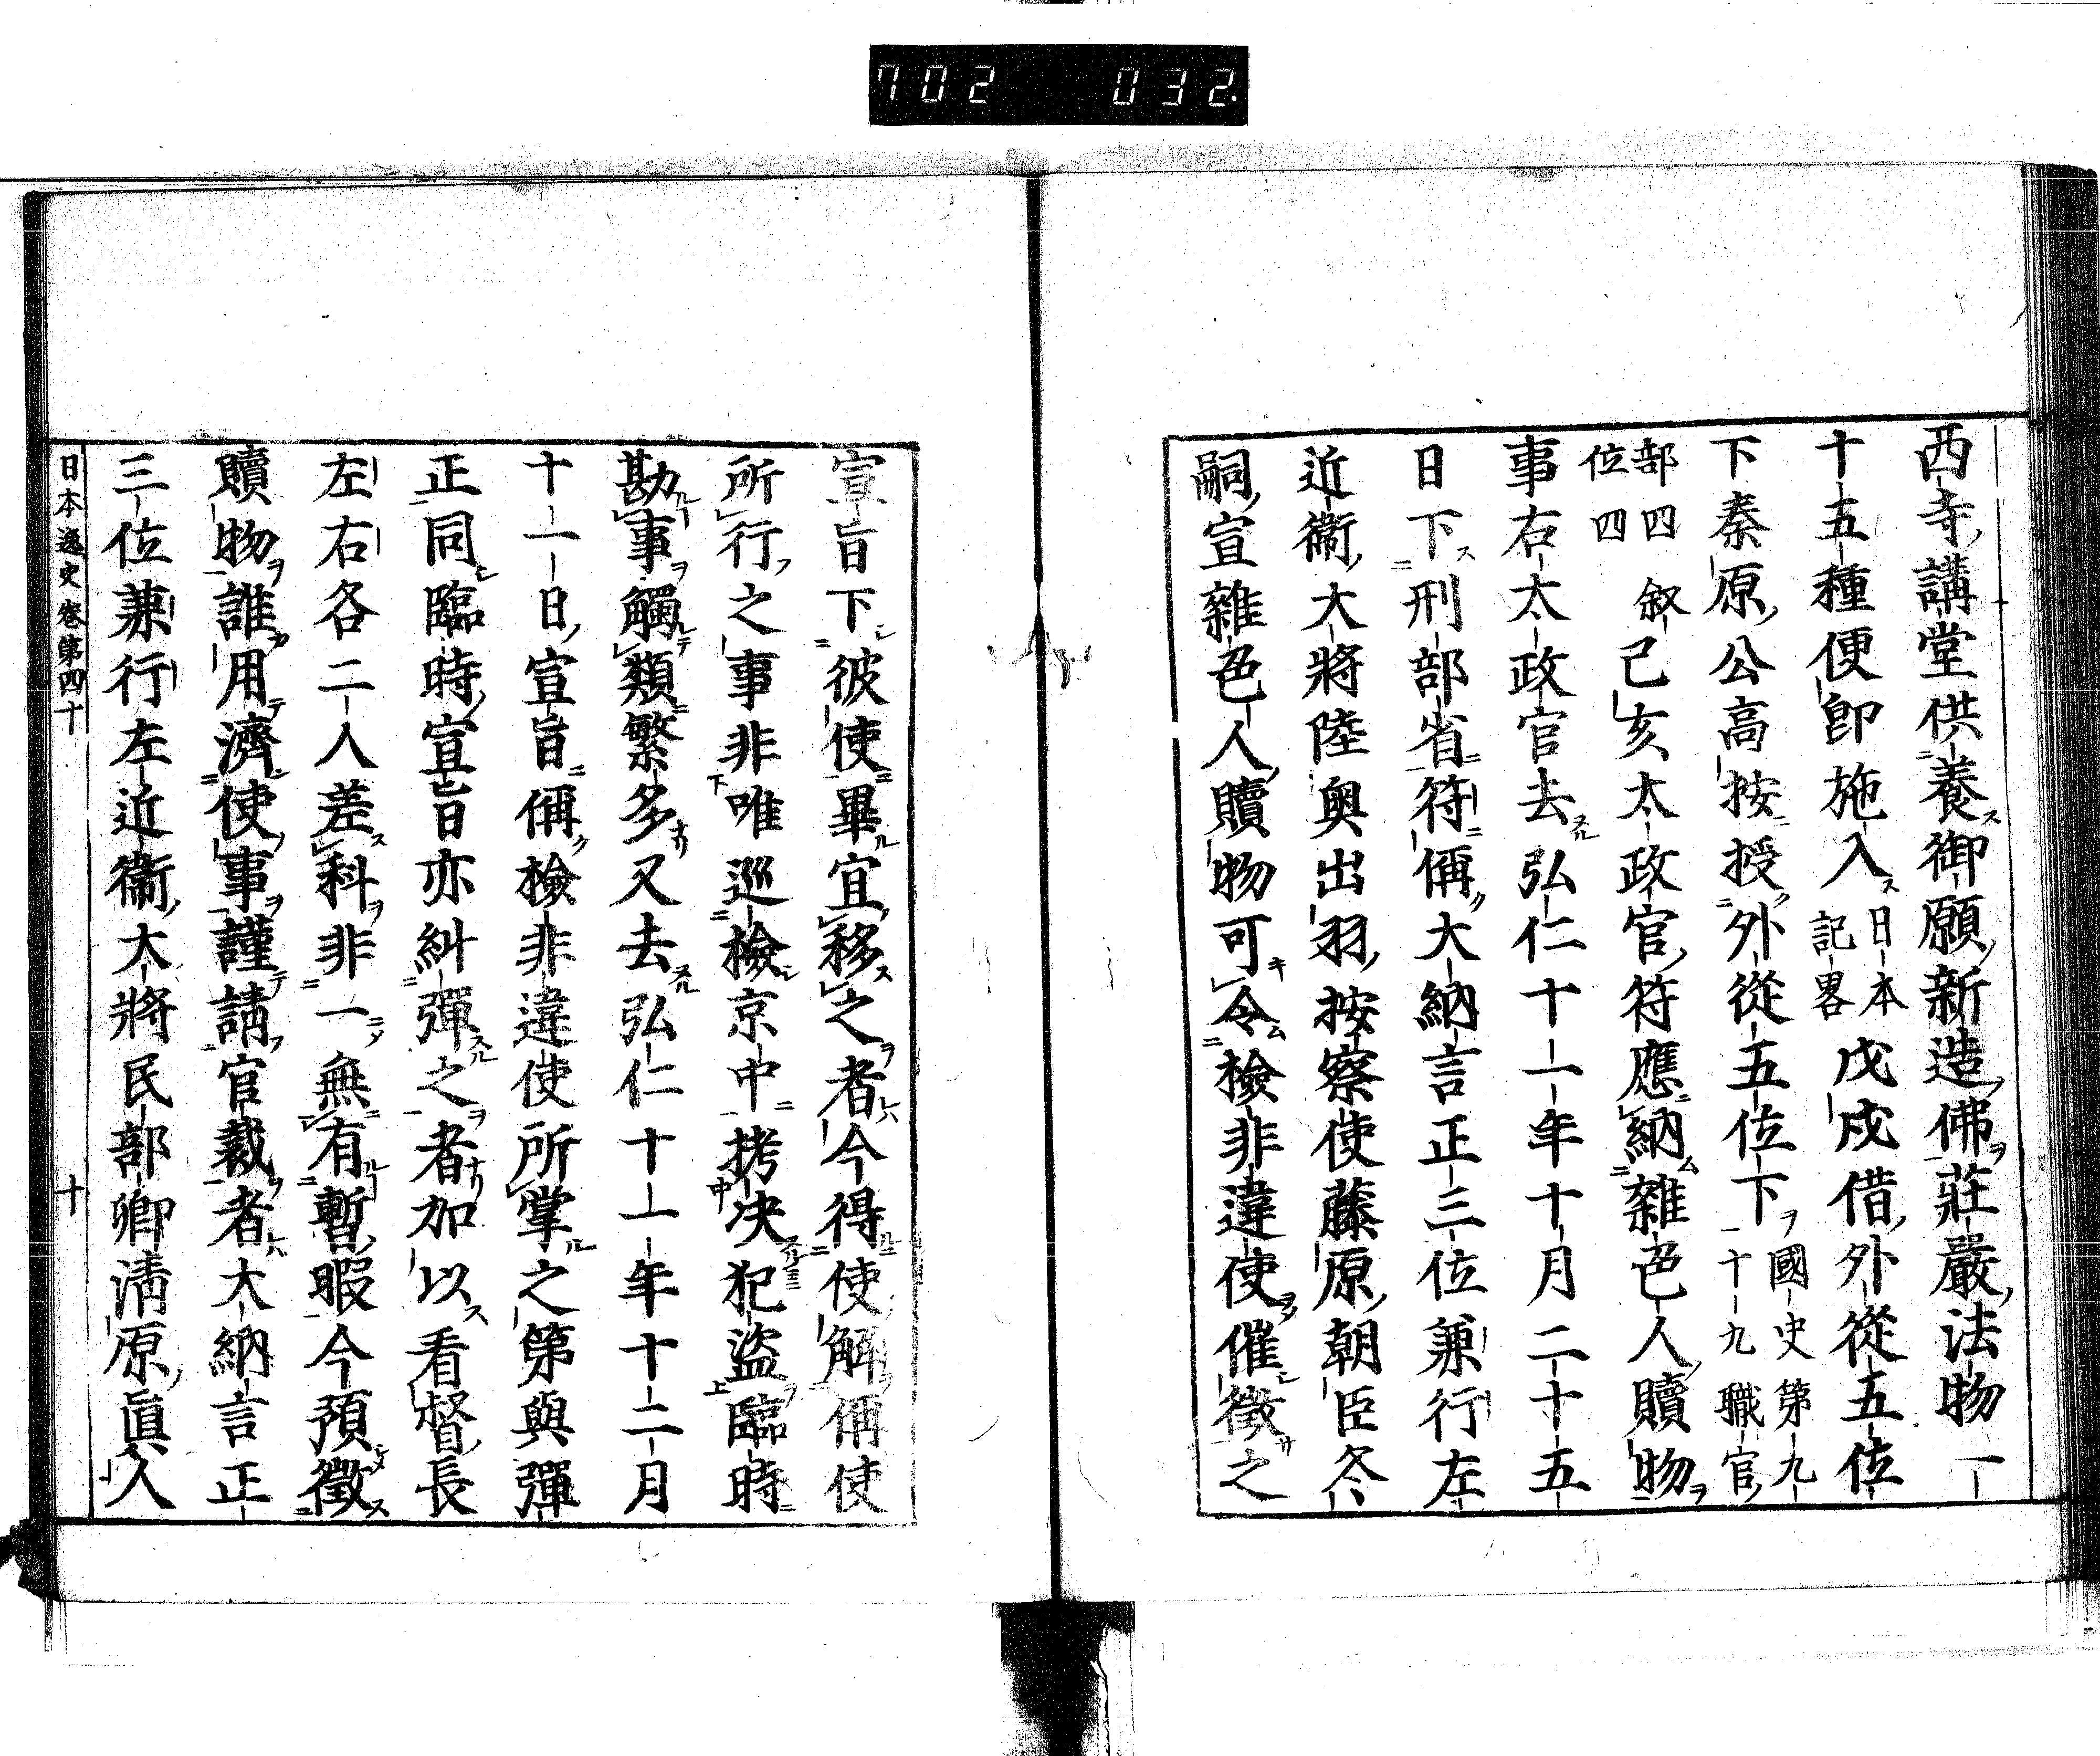 702 032.
西寺講堂供養御願新造佛莊嚴法物一
十五種便卽施入日本記畧戊戌借外從五位
下秦原公高按授外從五位下國史第九十九職官
部四敘位四己亥太政官符應納雜色人贖物
事右太政官去弘仁十一年十月二十五
日下刑部省符偁大納言正三位兼行左
近衞大將陸奧出羽按察使藤原朝臣冬
嗣宣雜色人贖物可令檢非違使催徵之
宣旨下彼使畢宜移之者今得使解偁使
所行之事非唯巡檢京中拷决犯盜臨時
勘事觸類繁多又去弘仁十一年十二月
十一日宣旨偁檢非違使所掌之第與彈
正同臨時宣旨亦糾彈之者加以看督長
左右各二人差科非一無有暫暇今預徵
贖物誰用濟使事謹請官裁者大納言正
三位兼行左近衞大將民部卿淸原眞人
日本逸史卷第四十 十